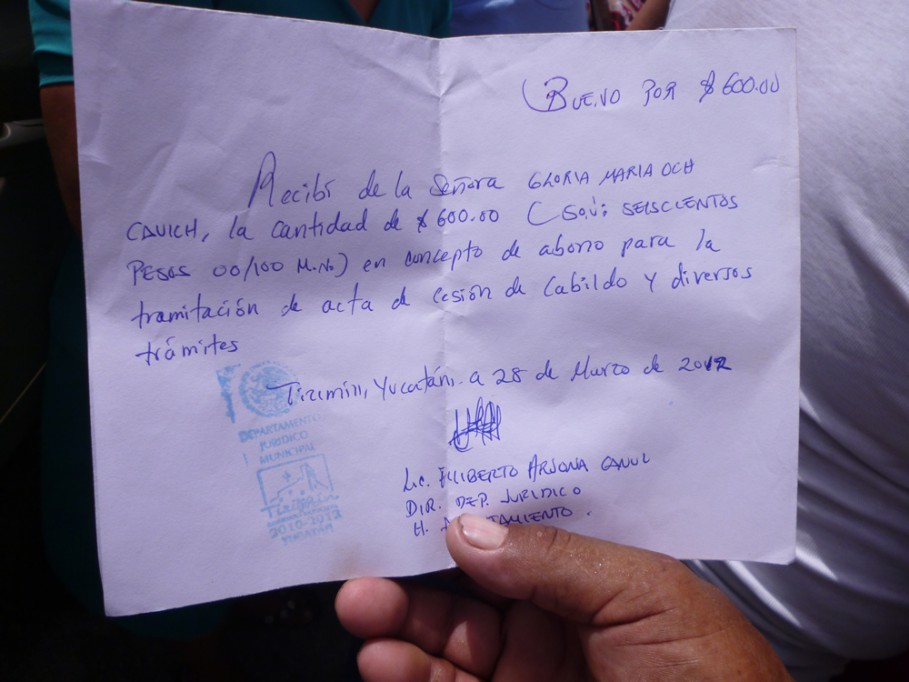 (BUENO POR $600.00
Recibí de la Señora GLORIA MARIA OCH
CAUICH, la cantidad de $600.00 (SON: SEISCIENTOS
PESOS 00/100 M.N.) en concepto de abono para la
tramitación de acta de cesión de Cabildo y diversos
trámites
Tizimín, Yucatán. a 28 de Marzo de 2012
DEPARTAMENTO
JURIDICO
MUNICIPAL
Tizimín
2010-2012
YUCATÁN
Lic. FILIBERTO ARJONA CANUL
DIR. DEP. JURIDICO
H.